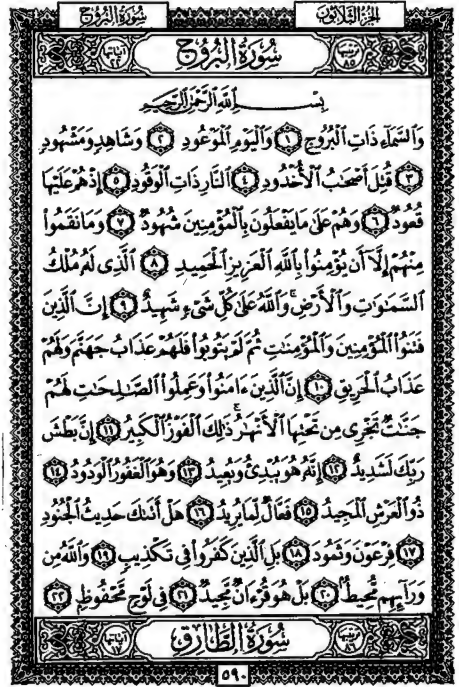 سُورَةُ البُرُوجِ الجُزْءُ الثَّلَاثُونَ
ترتيبها ٨٥ سُورَةُ البُرُوجِ آياتها ٢٢
بِسْمِ اللَّهِ الرَّحْمَٰنِ الرَّحِيمِ
وَالسَّمَاءِ ذَاتِ الْبُرُوجِ ١ وَالْيَوْمِ الْمَوْعُودِ ٢ وَشَاهِدٍ وَمَشْهُودٍ
٣ قُتِلَ أَصْحَٰبُ الْأُخْدُودِ ٤ النَّارِ ذَاتِ الْوَقُودِ ٥ إِذْ هُمْ عَلَيْهَا
قُعُودٌ ٦ وَهُمْ عَلَىٰ مَا يَفْعَلُونَ بِالْمُؤْمِنِينَ شُهُودٌ ٧ وَمَا نَقَمُوا
مِنْهُمْ إِلَّا أَن يُؤْمِنُوا بِاللَّهِ الْعَزِيزِ الْحَمِيدِ ٨ الَّذِي لَهُ مُلْكُ
السَّمَٰوَٰتِ وَالْأَرْضِ ۚ وَاللَّهُ عَلَىٰ كُلِّ شَيْءٍ شَهِيدٌ ٩ إِنَّ الَّذِينَ
فَتَنُوا الْمُؤْمِنِينَ وَالْمُؤْمِنَٰتِ ثُمَّ لَمْ يَتُوبُوا فَلَهُمْ عَذَابُ جَهَنَّمَ وَلَهُمْ
عَذَابُ الْحَرِيقِ ١٠ إِنَّ الَّذِينَ ءَامَنُوا وَعَمِلُوا الصَّٰلِحَٰتِ لَهُمْ
جَنَّٰتٌ تَجْرِي مِن تَحْتِهَا الْأَنْهَٰرُ ۚ ذَٰلِكَ الْفَوْزُ الْكَبِيرُ ١١ إِنَّ بَطْشَ
رَبِّكَ لَشَدِيدٌ ١٢ إِنَّهُ هُوَ يُبْدِئُ وَيُعِيدُ ١٣ وَهُوَ الْغَفُورُ الْوَدُودُ ١٤
ذُو الْعَرْشِ الْمَجِيدُ ١٥ فَعَّالٌ لِّمَا يُرِيدُ ١٦ هَلْ أَتَىٰكَ حَدِيثُ الْجُنُودِ
١٧ فِرْعَوْنَ وَثَمُودَ ١٨ بَلِ الَّذِينَ كَفَرُوا فِي تَكْذِيبٍ ١٩ وَاللَّهُ مِن
وَرَآئِهِم مُّحِيطٌ ٢٠ بَلْ هُوَ قُرْءَانٌ مَّجِيدٌ ٢١ فِي لَوْحٍ مَّحْفُوظٍ ٢٢
ترتيبها ٨٦ سُورَةُ الطَّارِقِ آياتها ١٧
٥٩٠